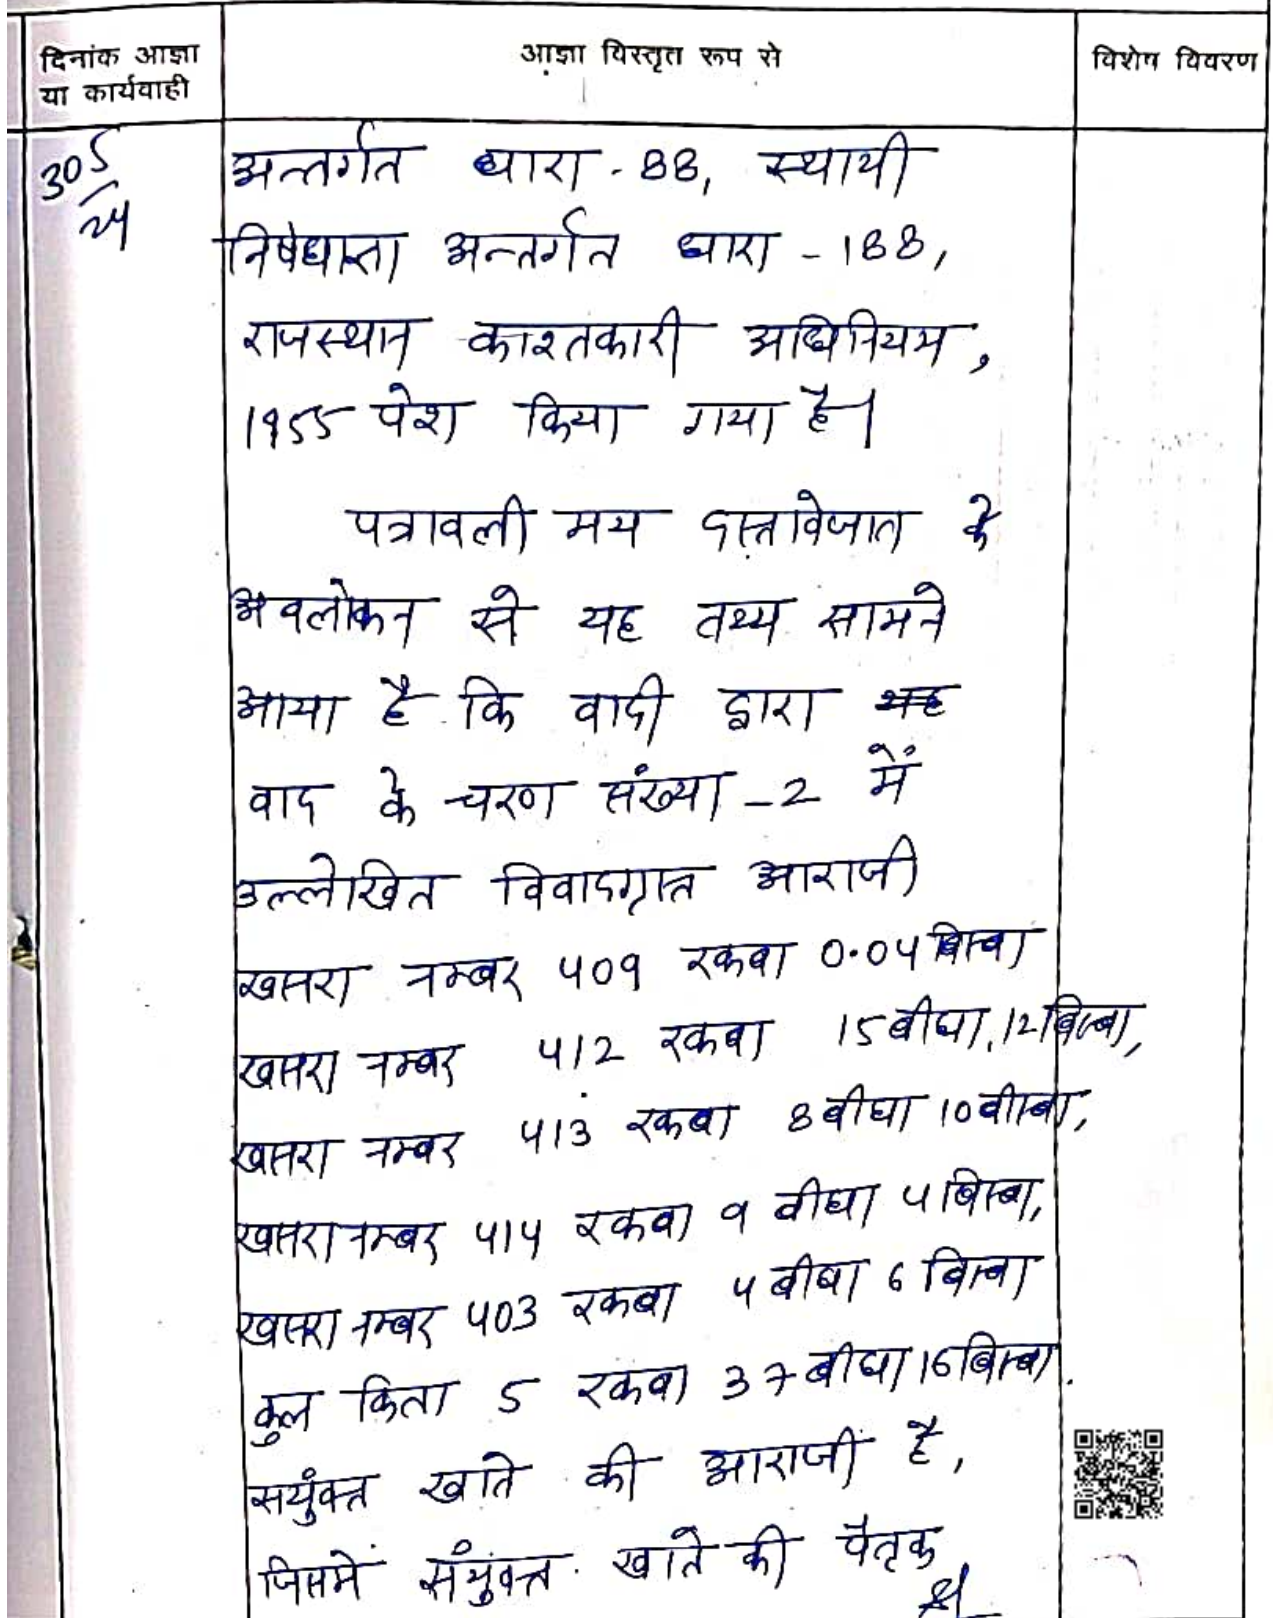 दिनांक आज्ञा
या कार्यवाही
आज्ञा विस्तृत रूप से
विशेष विवरण
30 5
24
अन्तर्गत धारा - 88, स्थायी
निषेधाज्ञा अन्तर्गत धारा - 188,
राजस्थान काश्तकारी अधिनियम,
1955 पेश किया गया है।
पत्रावली मय दस्तावेजात के
अवलोकन से यह तथ्य सामने
आया है कि वादी द्वारा यह
वाद के चरण संख्या - 2 में
उल्लेखित विवादग्रस्त आराजी
खसरा नम्बर 409 रकबा 0.04 बिस्वा
खसरा नम्बर 412 रकबा 15 बीघा, 12 बिस्वा,
खसरा नम्बर 413 रकबा 8 बीघा 10 बीस्वा,
खसरा नम्बर 414 रकबा 9 बीघा 4 बिस्वा,
खसरा नम्बर 403 रकबा 4 बीघा 6 बिस्वा
कुल किता 5 रकबा 37 बीघा 16 बिस्वा.
सयुंक्त खाते की आराजी है,
जिसमें संयुक्त खाते की पैतृक